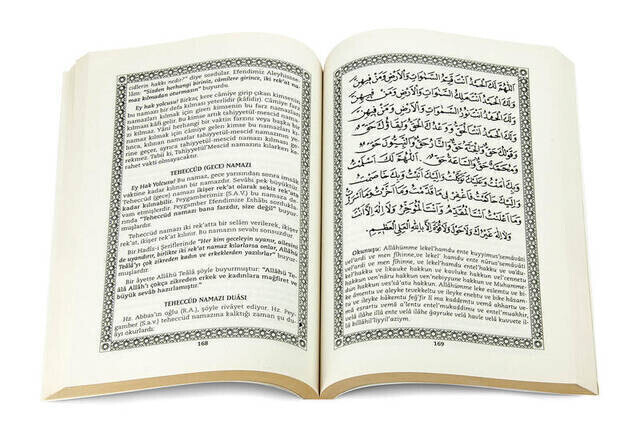 cidlerin hakkı nedir?" diye sordular. Efendimiz Aleyhisse-
lâm: "Sizden herhangi biriniz, câmilere girince, iki rek'at na-
maz kılmadan oturmasın" buyurdu.
Ey Hak yolcusu! Birkaç kere câmiye girip çıkan kimsenin
bu namazı bir defa kılması yeterlidir (kâfidir). Câmiye farz
namaz kılmak için giren kimsenin bu farz namazı
kılması kâfi gelir. Bu kimse artık tahiyyetül-mescid namazı
kılmaz. Yâni herhangi bir vaktin farzını veya başka bir
namaz kılmak için câmiye gelen kimse bu namazları kı-
lınca, aynı zamanda tahiyyetül-mescid namazı
rine geçer, ayrıca tahiyyetül-mescid namazı kılarken ke-
rahet vakti olmayacaktır.
TEHECCÜD (GECE) NAMAZI
Ey Hak Yolcusu! Bu namaz, gece yarısından sonra imsâk
vaktine kadar kılınan bir namazdır. Sevâbı pek büyüktür.
Teheccüd (gece) namazı ikişer rek'at olarak sekiz rek'ata
kadar kılınabilir. Peygamberimiz (S.A.V.) bu namaza de-
vam etmişlerdir. Peygamber Efendimiz Eshâbı sordukla-
rında "Teheccüd namazı bana farzdır, size değil" buyur-
muştur.
Teheccüd namazı iki rek'atta bir selâm verilerek, ikişer
rek'at, ikişer rek'at kılınır. Bu namazın sevâbı sonsuzdur.
Bir Hadîs-i Şeriflerinde "Her kim geceleyin uyanır, ailesini
de uyandırır, birlikte iki rek'at namaz kılarlarsa onlar, Allâhü
Teâlâ'yı çok zikreden kadın ve erkeklerden yazılırlar" buyur-
muşlardır.
Bir âyette Allâhü Teâlâ şöyle buyurmuştur: "Allâhü Te-
âlâ Allâh'ı çokça zikreden erkek ve kadınlara mağfiret ve
büyük sevâb hazırlamıştır."
TEHECCÜD NAMAZI DUÂSI
Hz. Abbas'ın oğlu (R.A.), şöyle rivâyet ediyor. Hz. Pey-
gamber (S.a.v.) teheccüd namazına kalktığı zaman şu du-
âyı okurlardı:
168
اَللّٰهُمَّ لَكَ الْحَمْدُ اَنْتَ قَيِّمُ السَّمٰوَاتِ وَالْاَرْضِ وَمَنْ فِيهِنَّ
وَلَكَ الْحَمْدُ اَنْتَ مَلِكُ السَّمٰوَاتِ وَالْاَرْضِ وَمَنْ فِيهِنَّ
وَلَكَ الْحَمْدُ اَنْتَ نُورُ السَّمٰوَاتِ وَالْاَرْضِ وَمَنْ فِيهِنَّ
وَلَكَ الْحَمْدُ اَنْتَ الْحَقُّ وَوَعْدُكَ الْحَقُّ وَلِقَاؤُكَ حَقٌّ
وَقَوْلُكَ حَقٌّ وَالْجَنَّةُ حَقٌّ وَالنَّارُ حَقٌّ وَالنَّبِيُّونَ حَقٌّ
وَمُحَمَّدٌ حَقٌّ وَالسَّاعَةُ حَقٌّ اَللّٰهُمَّ لَكَ اَسْلَمْتُ
وَبِكَ اٰمَنْتُ وَعَلَيْكَ تَوَكَّلْتُ وَاِلَيْكَ اَنَبْتُ وَبِكَ خَاصَمْتُ
وَاِلَيْكَ حَاكَمْتُ فَاغْفِرْ لِي مَا قَدَّمْتُ وَمَا اَخَّرْتُ وَمَا اَسْرَرْتُ
وَمَا اَعْلَنْتُ اَنْتَ الْمُقَدِّمُ وَاَنْتَ الْمُؤَخِّرُ لَا اِلٰهَ اِلَّا اَنْتَ
وَلَا اِلٰهَ غَيْرُكَ وَلَا حَوْلَ وَلَا قُوَّةَ اِلَّا بِاللّٰهِ الْعَلِيِّ الْعَظِيمِ
Okunuşu: Allâhümme lekel'hamdu ente kayyimus'semâvâti
vel'ardı ve men fîhinne, ve lekel'hamdu ente
vel'ardı ve men fîhinne, ve lekel'hamdu
hakku ve likauke hakkun ve kavluke hakkun vel'cennetu
hakkun ven'nâru hakkun ven'nebiyyûne ve Muhamme-
dun hakkun ves'sâatu hakkun. Allâhümme leke eslemtu ve bike
âmentu ve aleyke tevekkeltu ve ileyke enebtu ve bike hâsam-
tu ve ileyke hâkemtu feğ'fir lî ma kaddemtu vema ahhertu ve-
mâ esrartu vemâ a'lentu entel'mukaddimu ve entel'muahhir,
velâ ilâhe illâ ente velâ ilâhe ğayruke velâ havle velâ kuvvete il-
lâ billâhil'aliyyil'azîym.
169